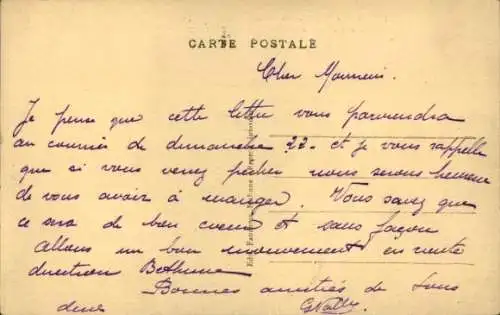 CARTE POSTALE
Cher Monsieur.
Je pense que cette lettre vous parviendra
au courrier de dimanche 22. et je vous rappelle
que si vous venez pêcher nous serons heureux
de vous avoir à manger. Vous savez que
ce sera de bon coeur et sans façon
Allons un bon mouvement en route
direction Bethune
Bonnes amitiés de tous